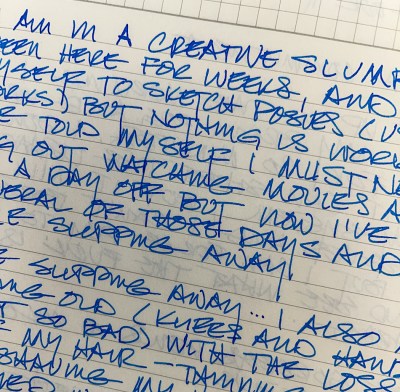 AM IN A CREATIVE SLUMP
BEEN HERE FOR WEEKS, AND
MYSELF TO SKETCH POSIES (US
WORKS) BUT NOTHING IS WORK
TOLD MYSELF I MUST N
OUT WATCHING MOVIES A
A DAY OFF BUT NOW I'VE
OF THOSE DAYS AND
SLIPPING AWAY.
SLIPPING AWAY... I ALSO
OLD (KNEES AND HAND
SO BAD) WITH THE LOSS
MY HAIR -
MY